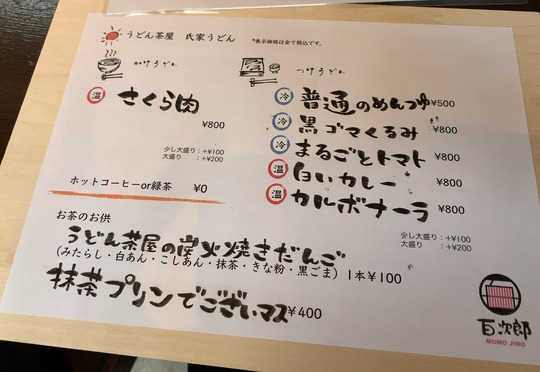 うどん茶屋 氏家うどん
*表示価格は全て税込です。
かけうどん
温 さくら肉
¥800
少し大盛り：+¥100
大盛り：+¥200
ホットコーヒーor緑茶 ¥0
つけうどん
冷 普通のめんつゆ ¥500
冷 黒ゴマくるみ ¥800
冷 まるごとトマト ¥800
温 白いカレー ¥800
温 カルボナーラ ¥800
少し大盛り：+¥100
大盛り：+¥200
お茶のお供
うどん茶屋の炭火焼きだんご
(みたらし・白あん・こしあん・抹茶・きな粉・黒ごま) 1本¥100
抹茶プリンでございマス ¥400
百次郎
MOMO JIRO